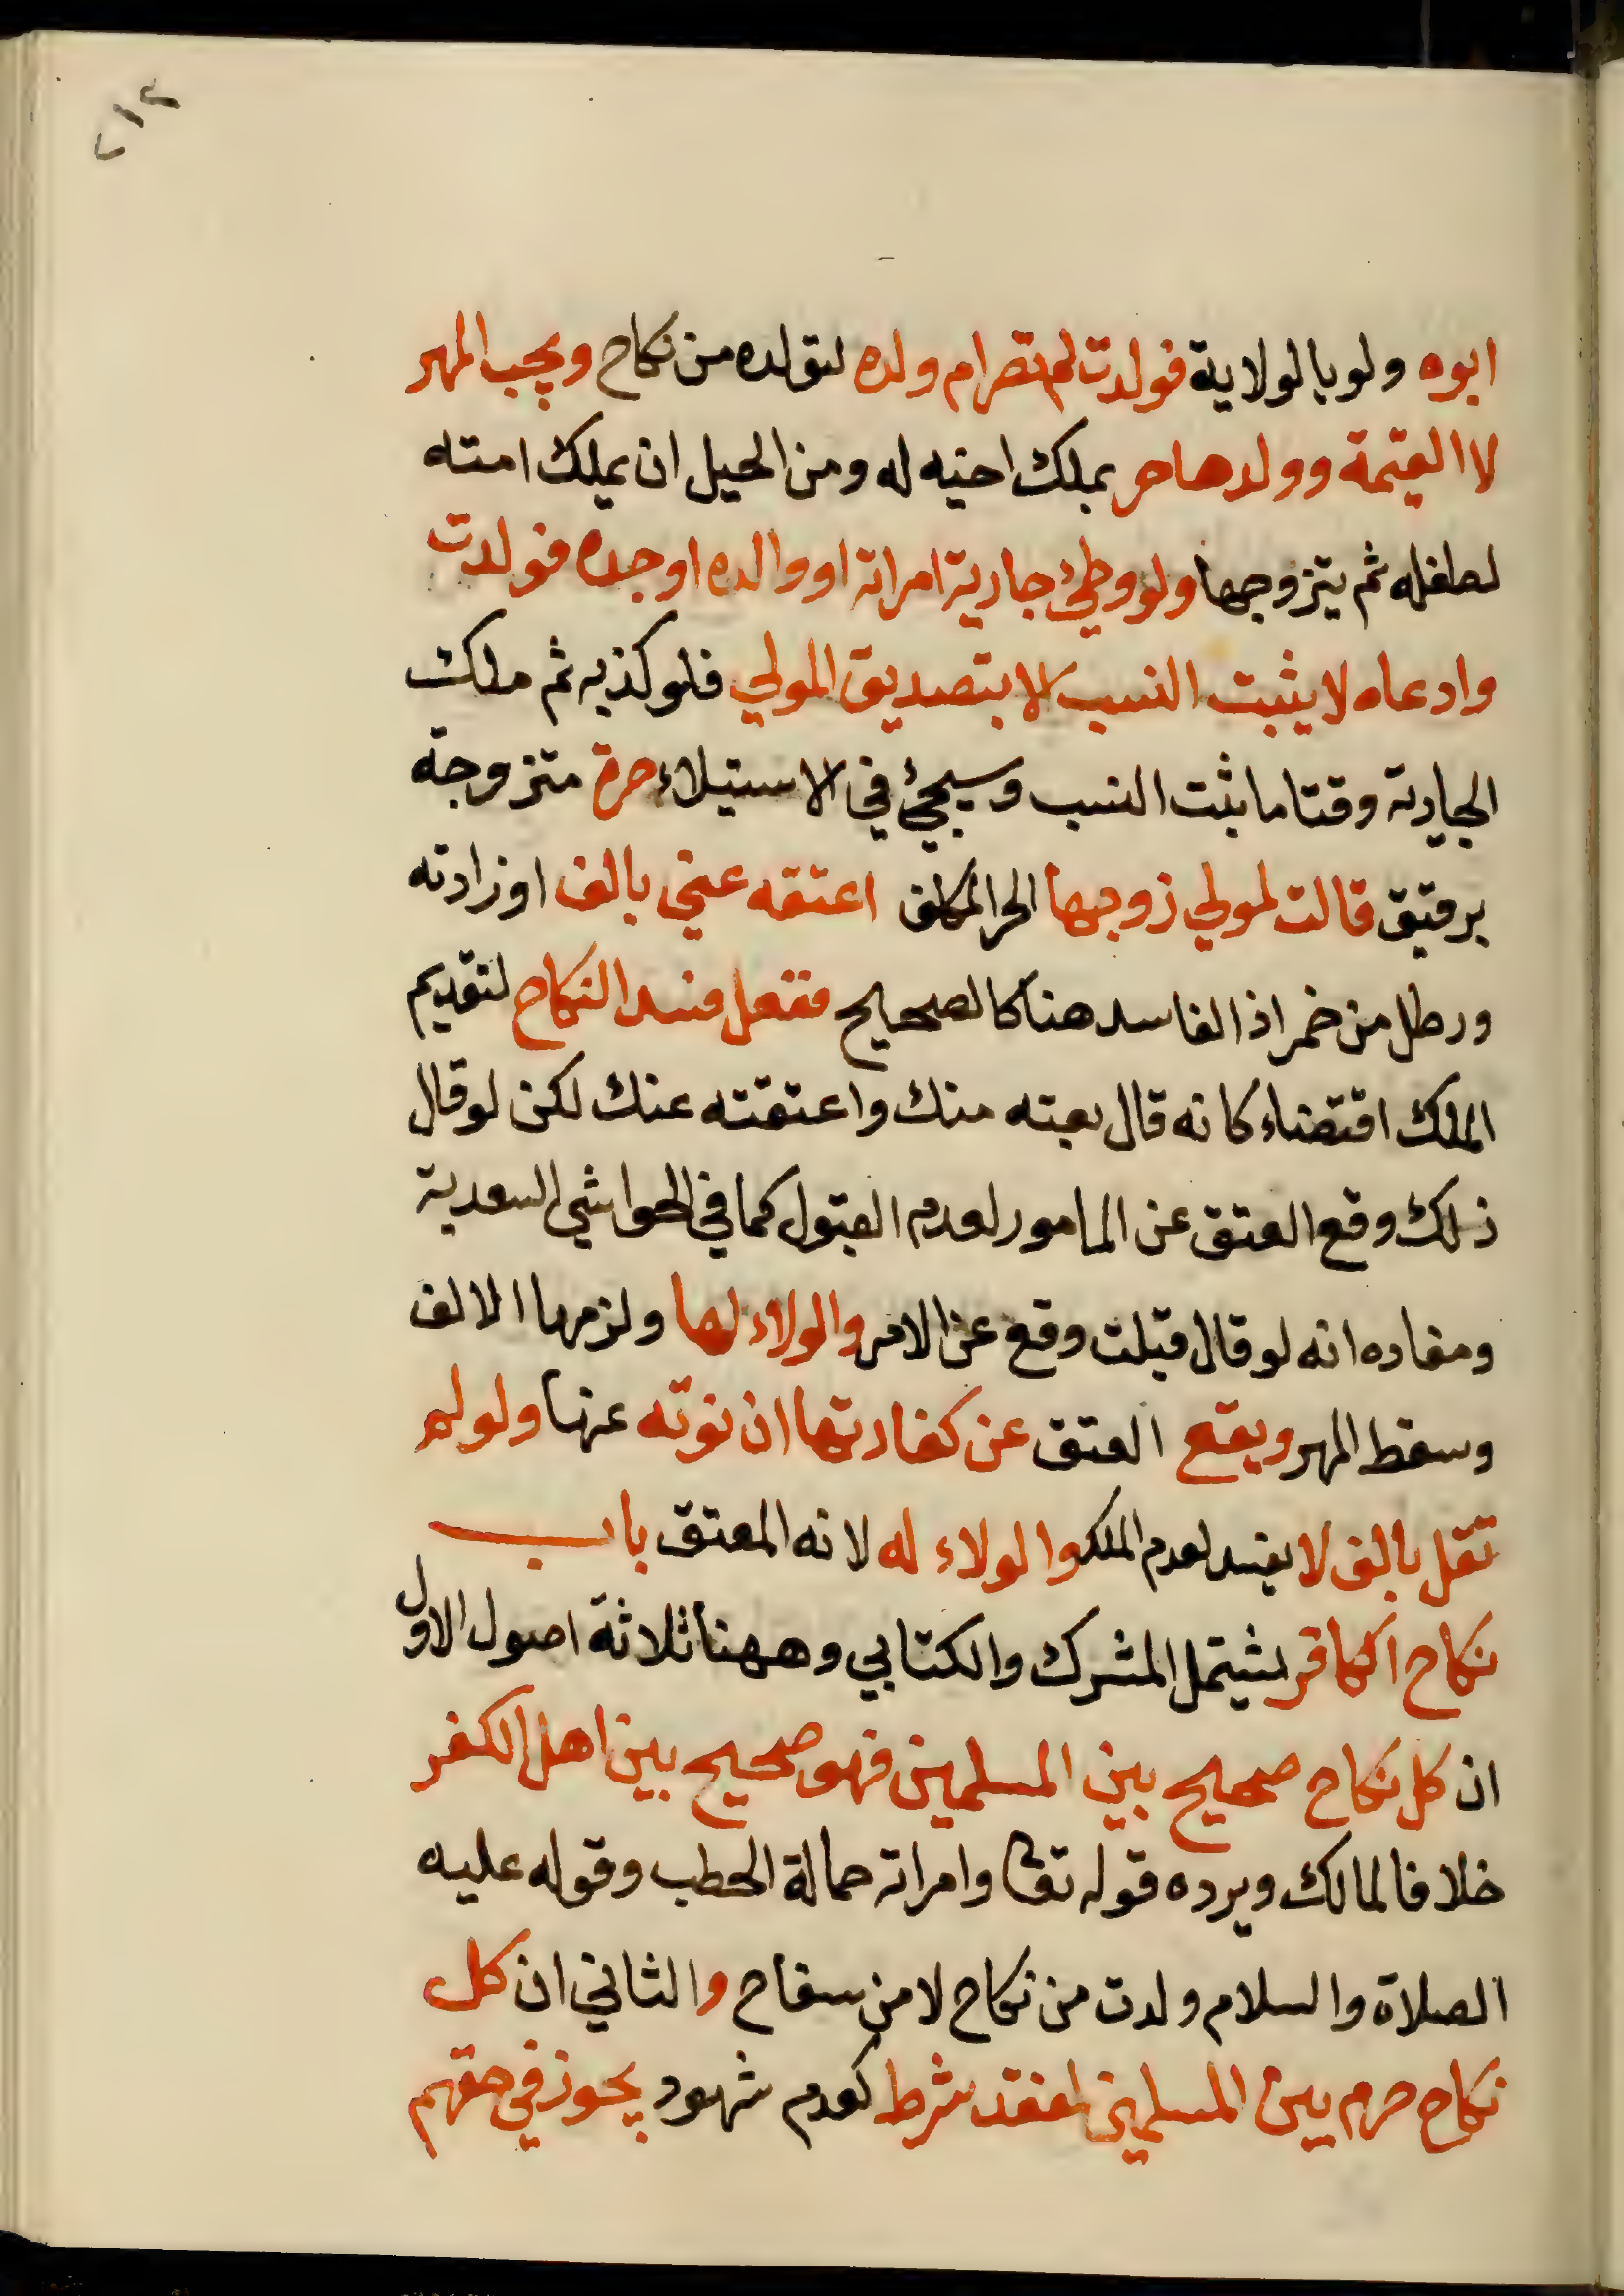 ٢١٢
ابوه ولو بالولاية فولدت لم تصر ام ولده لتولده من نكاح ويجب المهر
لا القيمة وولدها حر بملك اخيه له ومن الحيل ان يملك امته
لطفله ثم يتزوجها ولو وطئ جارية امراته او والده او جده فولدت
وادعاه لا يثبت النسب الا بتصديق المولي فلو كذبه ثم ملك
الجارية وقتا ما ثبت النسب وسيجئ في الاستيلاء حرة متزوجة
برقيق قالت لمولي زوجها الحر المكلف اعتقه عني بالف او زادته
ورطل من خمر اذ الفاسد هنا كالصحيح ففعل فسد النكاح لتقديم
الملك اقتضاء كانه قال بعته منك واعتقته عنك لكن لو قال
ذلك وقع العتق عن المامور لعدم القبول كما في الحواشي السعدية
ومفاده انه لو قال قبلت وقع عن الامر والولاء لها ولزمها الالف
وسقط المهر ويقع العتق عن كفارتها ان نوته عنها ولو لم
تقل بالف لا يفسد لعدم الملك والولاء له لانه المعتق باب
نكاح الكافر يشتمل المشرك والكتابي وههنا ثلاثة اصول الاول
ان كل نكاح صحيح بين المسلمين فهو صحيح بين اهل الكفر
خلافا لمالك ويرده قوله تعا وامراته حمالة الحطب وقوله عليه
الصلاة والسلام ولدت من نكاح لا من سفاح والثاني ان كل
نكاح حرم بين المسلمين لفقد شرط كعدم شهود يجوز في حقهم